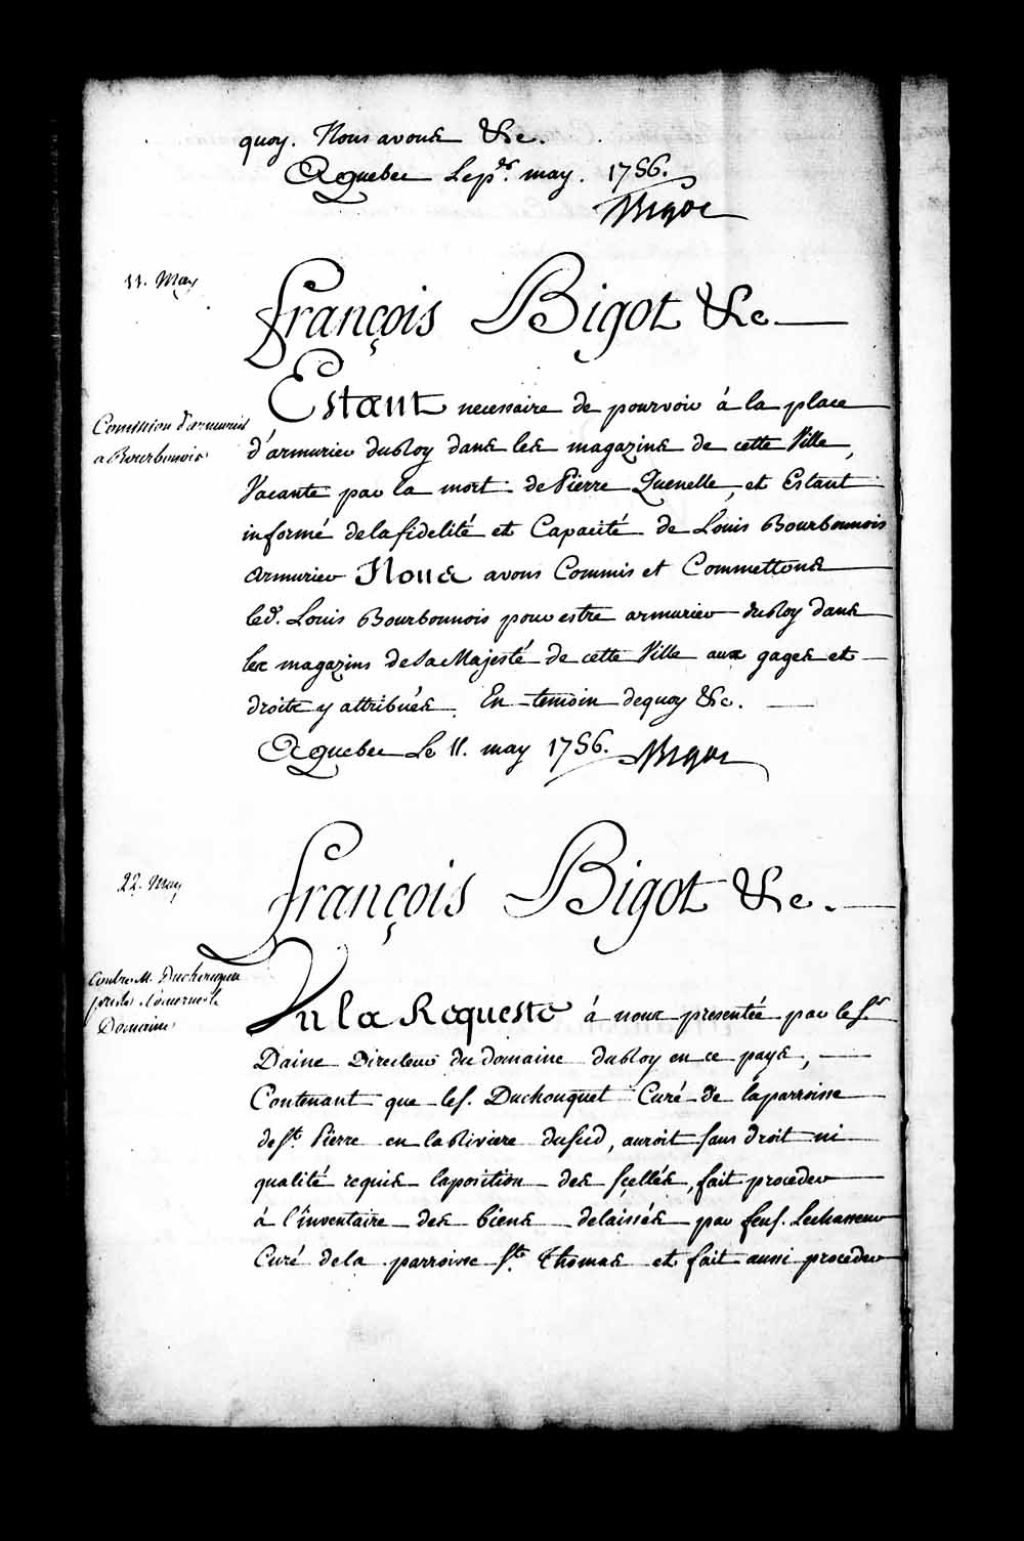 quoy. Nous avons &c.
A Quebec Le p.er may. 1756.
Bigot
11. May
François Bigot &c
Commission d'armurier
a Bourbonois
Estant necessaire de pourvoir á la place
d'armurier du Roy dans les magazins de cette Ville,
Vacante par la mort de Pierre Quenelle, et Estant
informé de la fidelité et Capacité de Louis Bourbonnois
armurier Nous avons Commis et Commettons
led. Louis Bourbonnois pour estre armurier du Roy dans
les magazins de Sa Majesté de cette Ville aux gages et
droits y attribués. En temoin de quoy &c.
A Quebec Le 11. may 1756. Bigot
22. May
François Bigot &c.
Contre M. Duchouquet
Domaine
Vu la Requeste á nous presentée par le Sr.
Daine Directeur du domaine du Roy en ce pays,
Contenant que le S. Duchouquet Curé de la parroisse
de St. Pierre en la Riviere du Sud, auroit sans droit ni
qualité requis l'aposition des sçellés, fait proceder
á l'inventaire des biens delaissés par feu S. Lechasseur
Curé de la parroisse St. Thomas et fait aussi proceder